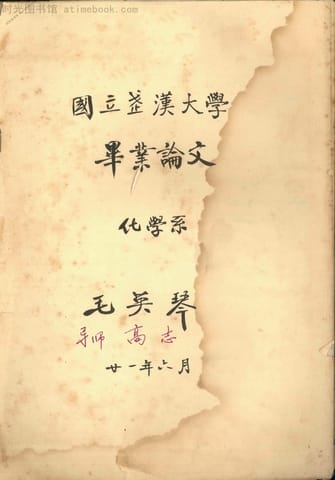 时光图书馆 atimebook.com
國立武漢大學
畢業論文
化學系
毛英琴
导师 高志
廿一年六月